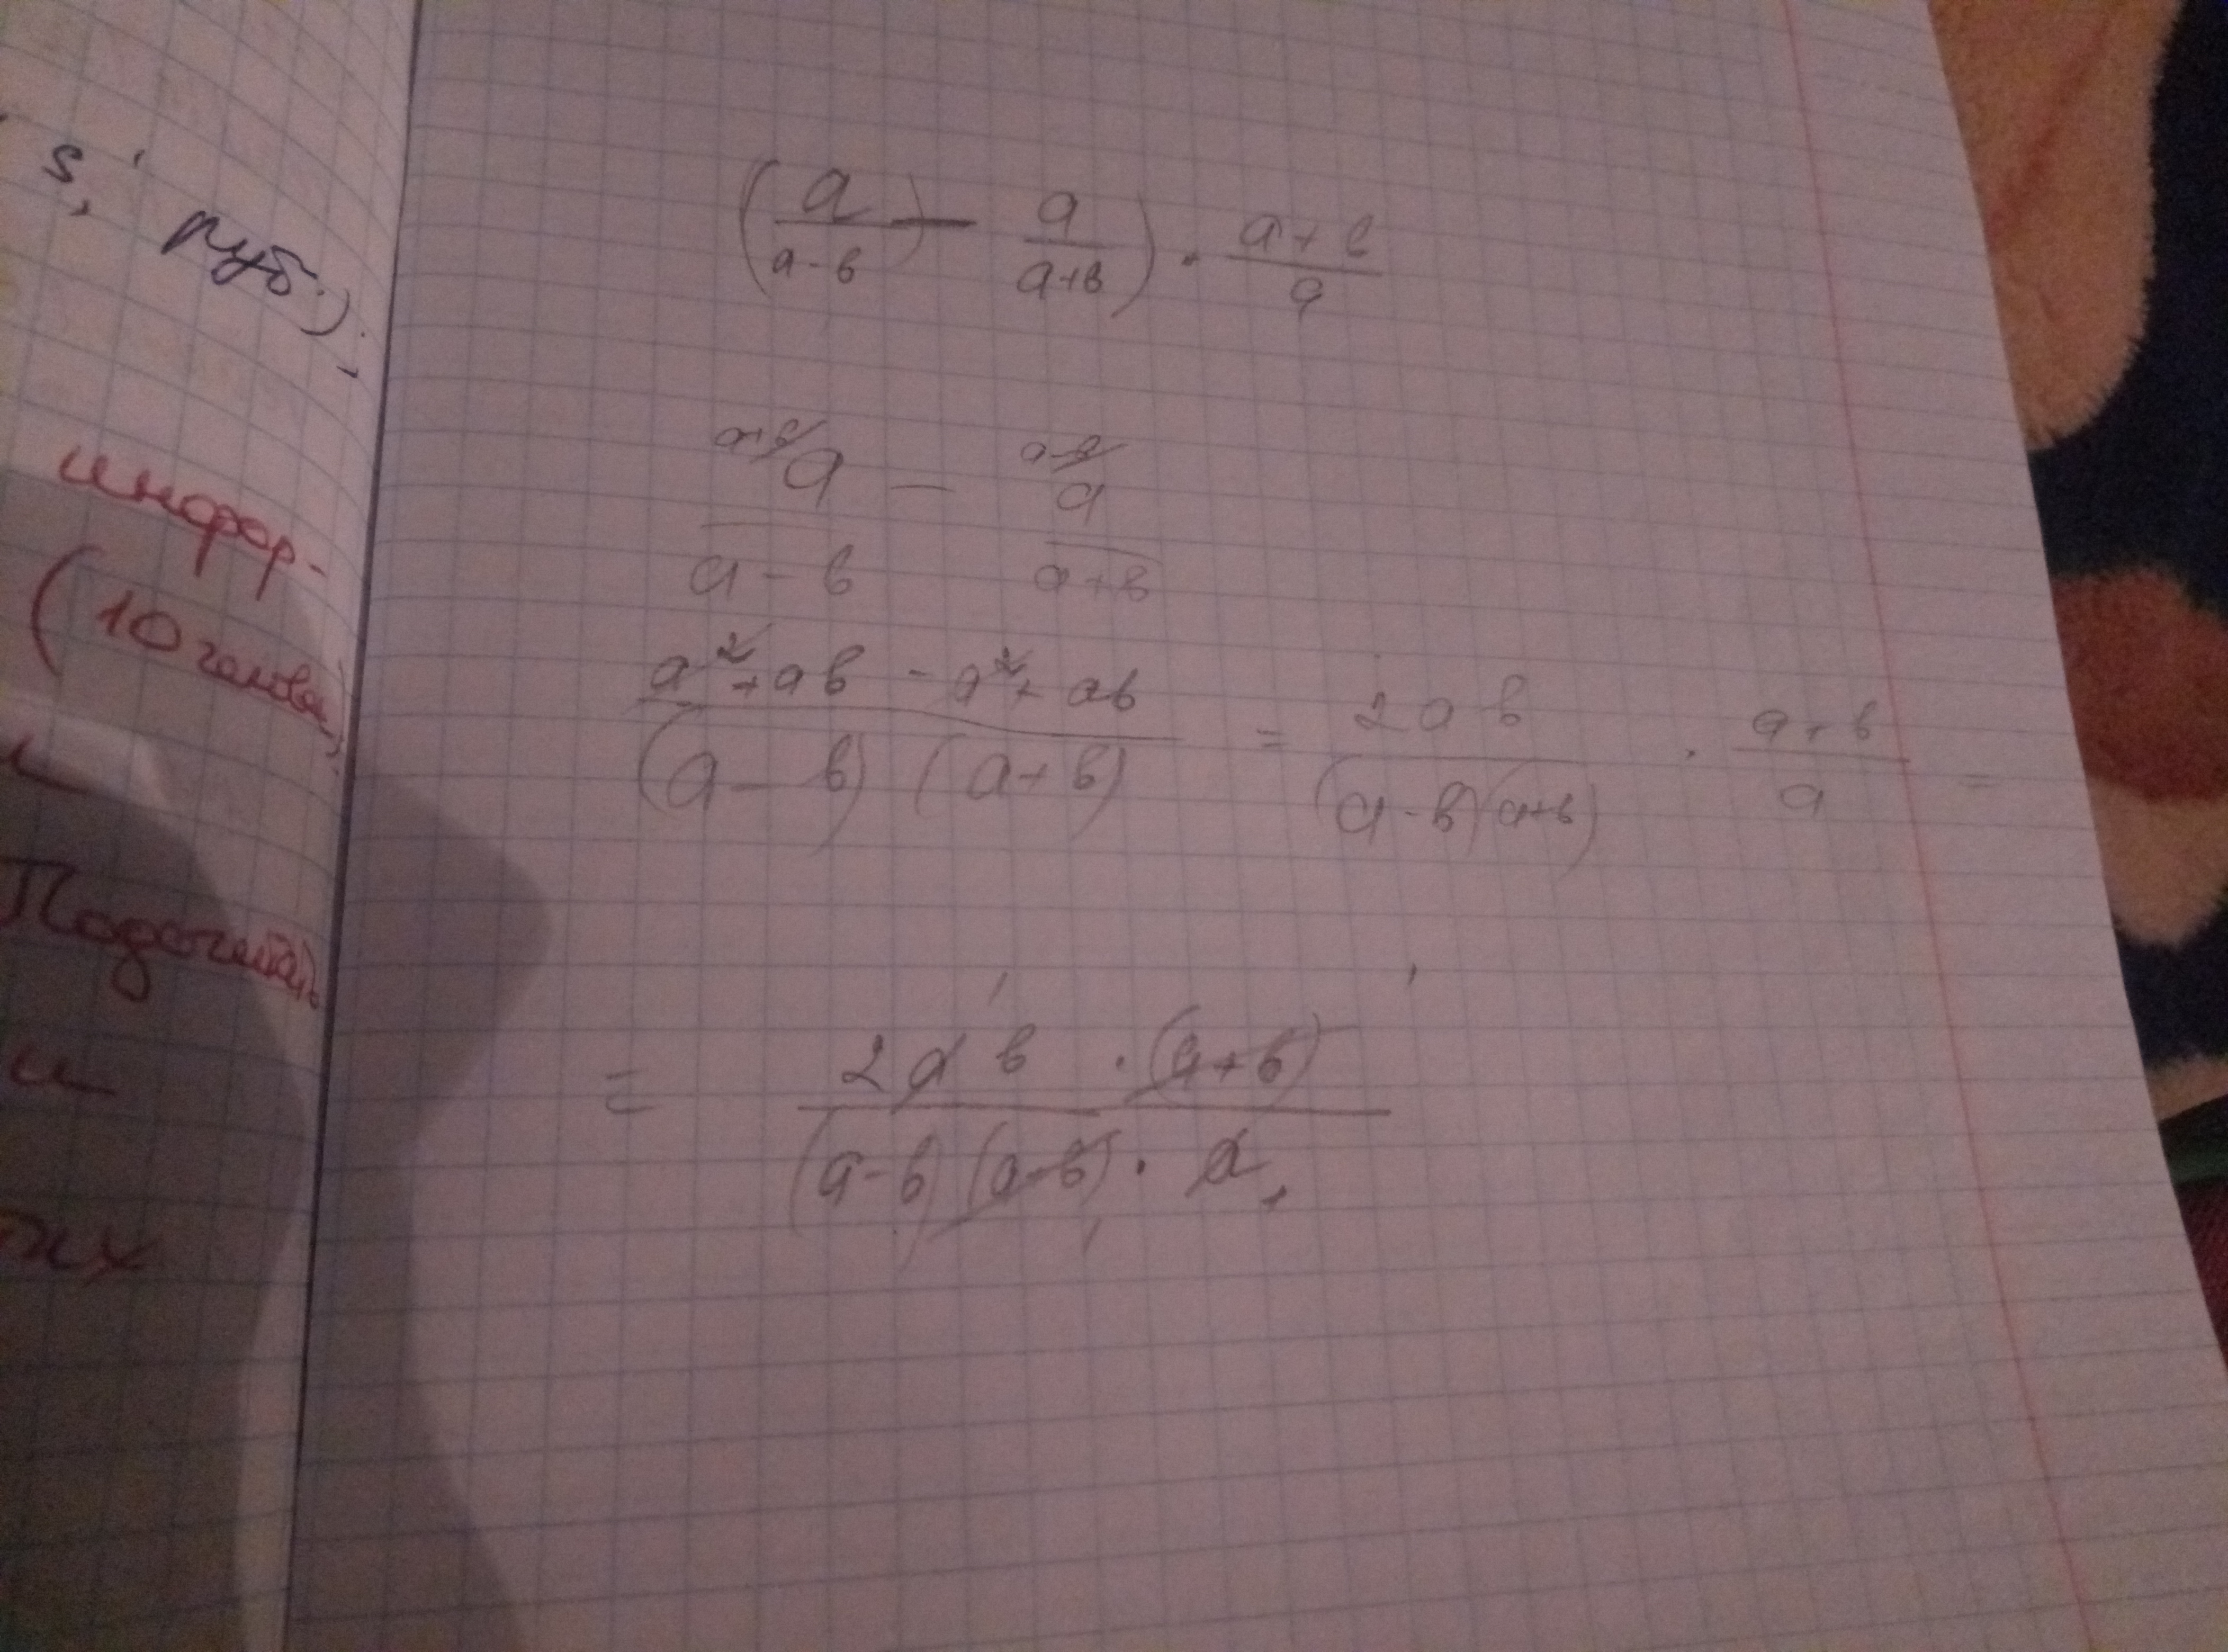 s,
руб.);
инфор-
(10
Подочитать
и
их
(a/(a-b) - a/(a+b)) · (a+b)/a
a+b/ a - a-b/ a
a-b a+b
(a²+ab - a²+ab)/((a-b)(a+b)) = 2ab/((a-b)(a+b)) · (a+b)/a =
= (2ab · (a+b))/((a-b)(a-b) · a)